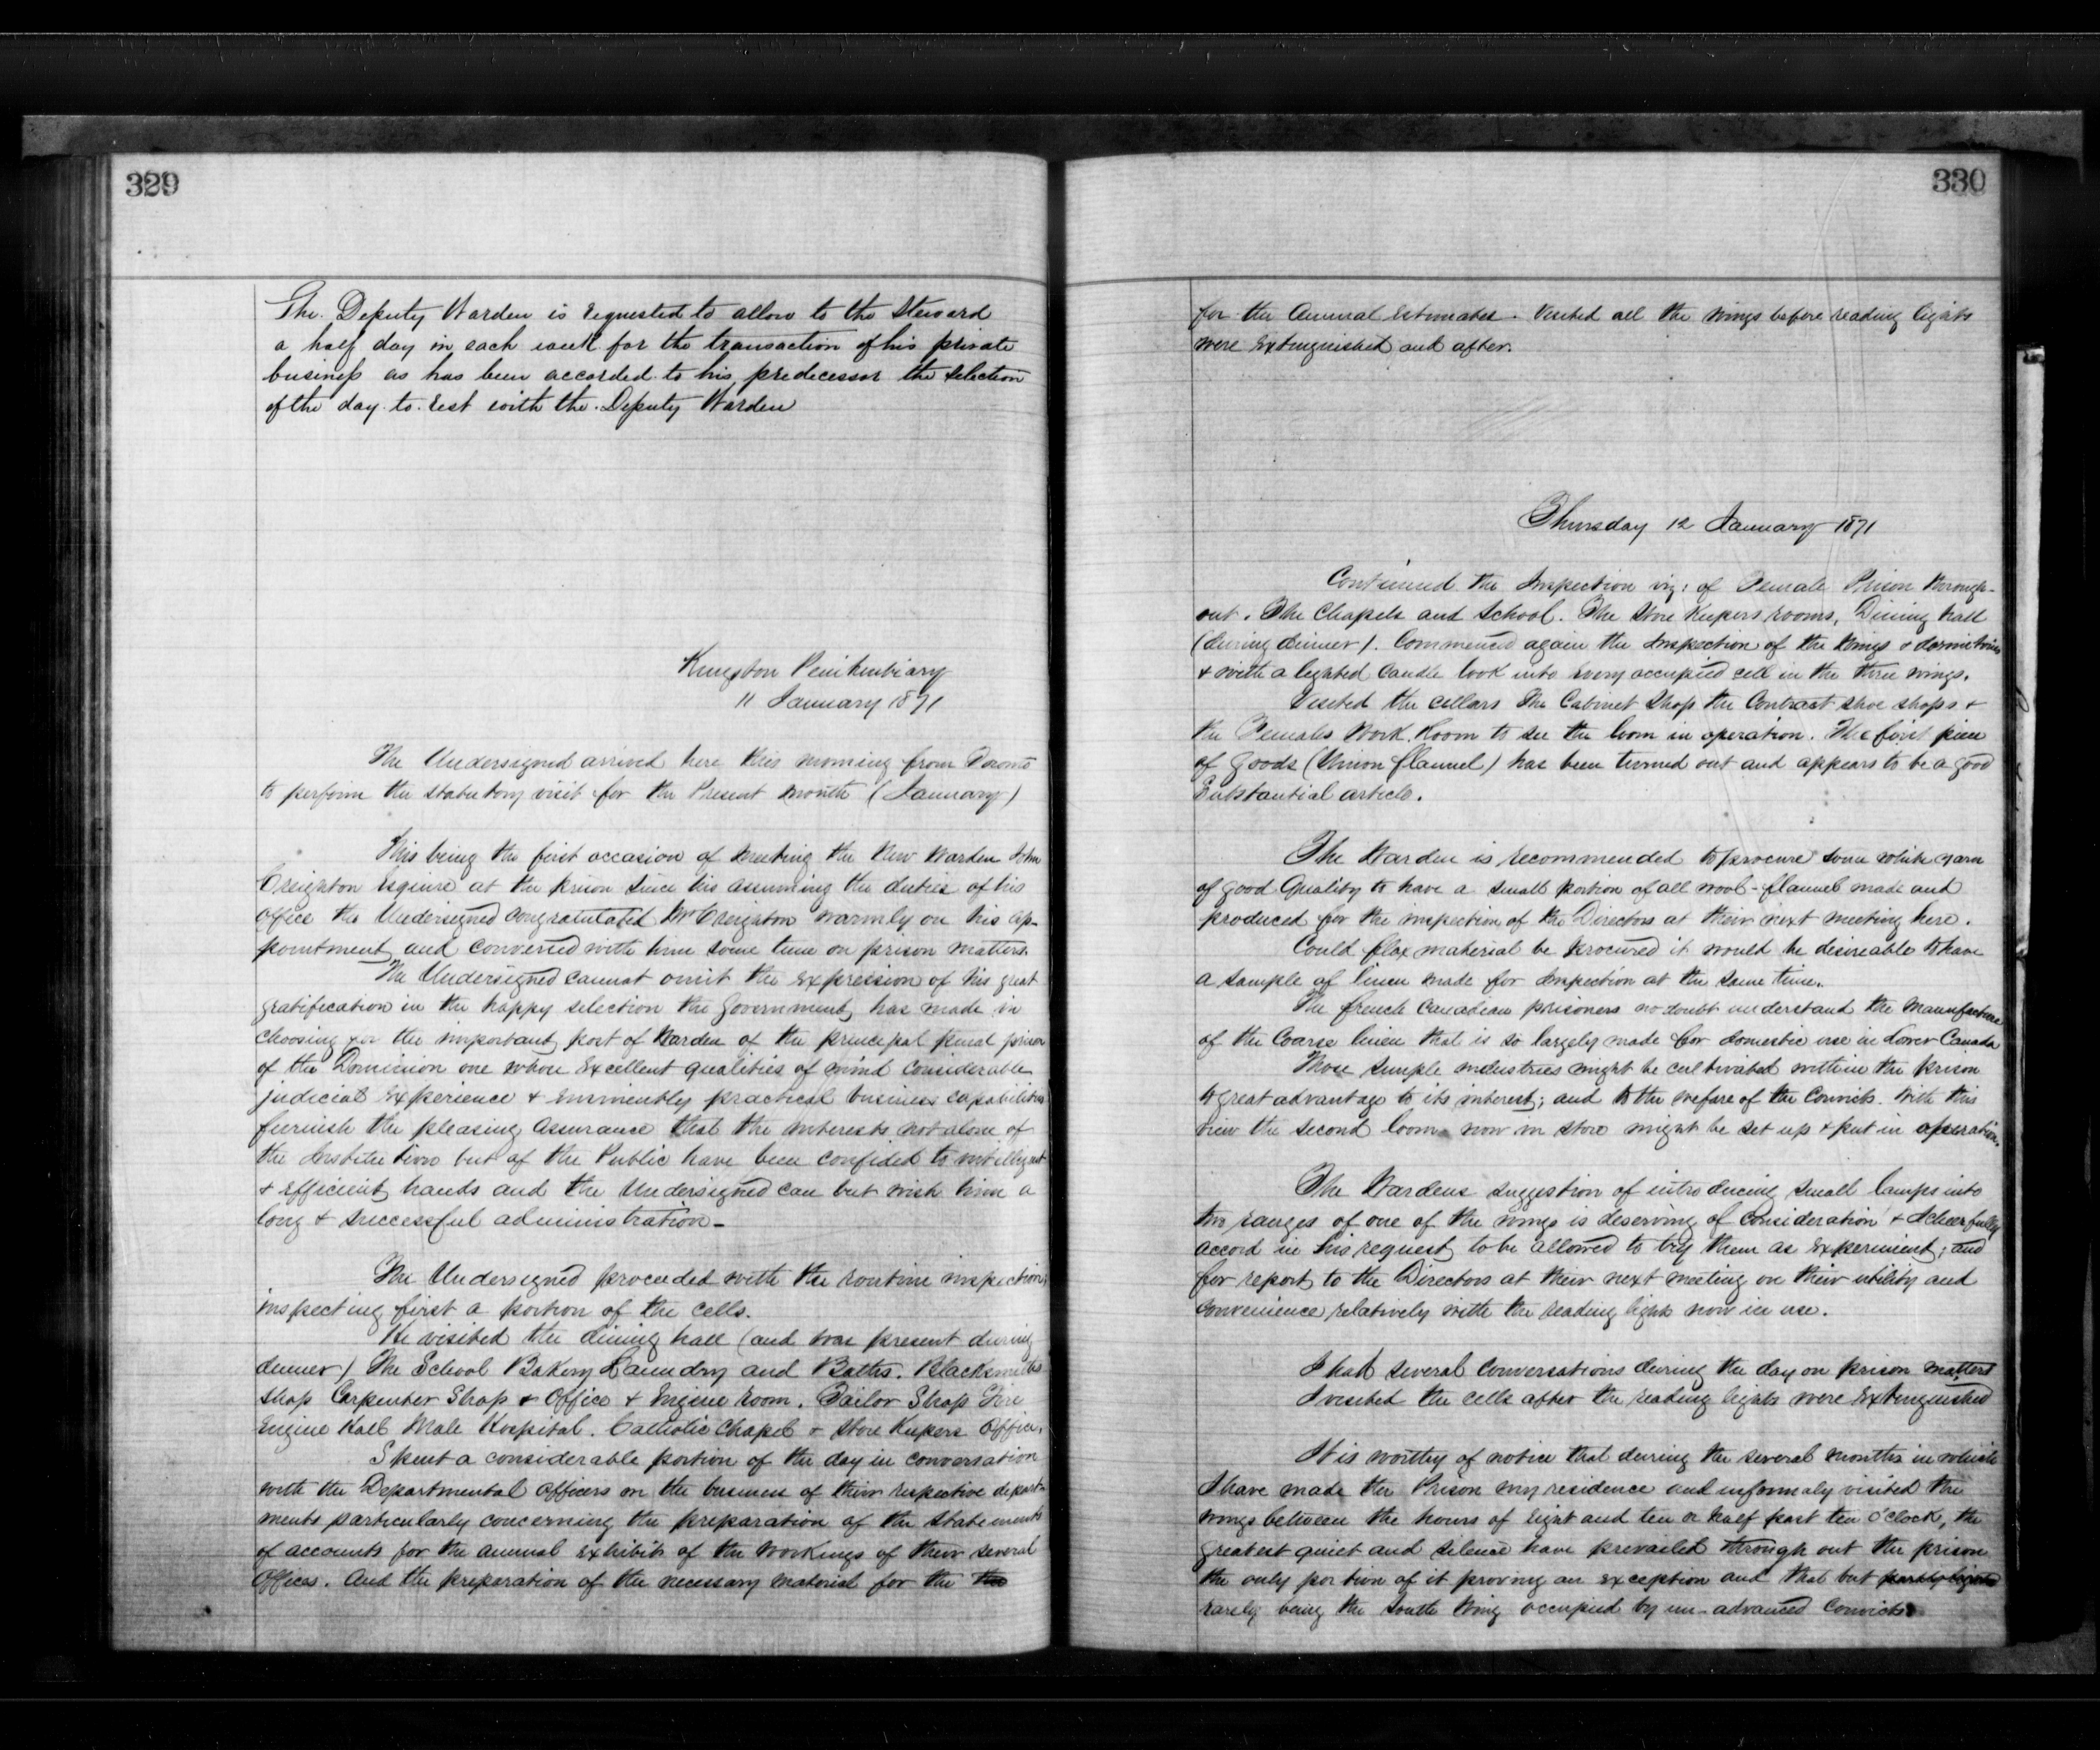 329
The Deputy Warden is requested to allow to the Steward
a half day in each week for the transaction of his private
business as has been accorded to his predecessor the selection
of the day to rest with the Deputy Warden
Kingston Penitentiary
11 January 1871
The Undersigned arrived here this morning from Toronto
to perform the statutory visit for the Present month (January)
This being the first occasion of meeting the New Warden John
Creighton Esquire at the prison since his assuming the duties of his
office the Undersigned congratulated Mr Creighton warmly on his ap-
pointment and conversed with him some time on prison matters.
The Undersigned cannot omit the expression of his great
gratification in the happy selection the Government has made in
choosing for the important post of Warden of the principal penal prison
of the Dominion one whose excellent qualities of mind considerable
judicial experience & eminently practical business capabilities
furnish the pleasing assurance that the interests not alone of
the Institution but of the Public have been confided to intelligent
& efficient hands and the Undersigned can but wish him a
long & successful administration -
The Undersigned proceeded with the routine inspection,
inspecting first a portion of the cells.
He visited the dining hall (and was present during
dinner) The School Bakery Laundry and Baths. Blacksmiths
shop Carpenter Shop & Office & Engine room. Tailor Shop Fire
Engine Hall Male Hospital. Catholic Chapel & Store Keepers Office.
Spent a considerable portion of the day in conversation
with the Departmental Officers on the business of their respective depart-
ments particularly concerning the preparation of the statements
of accounts for the annual exhibits of the workings of their several
Offices. And the preparation of the necessary material for the the
330
for the Annual Estimates. Visited all the wings before reading lights
were extinguished and after.
Thursday 12 January 1871
Continued the Inspection viz: of Female Prison through-
out. The Chapels and School. The Store Keepers rooms, Dining hall
(during dinner). Commenced again the Inspection of the Wings & dormitories
& with a lighted candle look into every occupied cell in the three wings.
Visited the cellars The Cabinet Shop the Contract shoe shops &
the Females Work Room to see the loom in operation. The first piece
of goods (Union flannel) has been turned out and appears to be a good
Substantial article.
The Warden is recommended to procure some white yarn
of good Quality to have a small portion of all wool-flannel made and
produced for the inspection of the Directors at their next meeting here.
Could flax material be procured it would be desireable to have
a sample of linen made for Inspection at the same time.
The french Canadian prisoners no doubt understand the manufacture
of the Coarse linen that is so largely made for domestic use in Lower Canada
These simple industries might be cultivated within the prison
to great advantage to its interest; and to the welfare of the Convicts. With this
view the second loom now in store might be set up & put in operation.
The Wardens suggestion of introducing small lamps into
two ranges of one of the wings is deserving of consideration & I cheerfully
accord in his request to be allowed to try them as experiment; and
for report to the Directors at their next meeting on their utility and
convenience relatively with the reading light now in use.
I had several conversations during the day on prison matters
I visited the cells after the reading lights were extinguished
It is worthy of notice that during the several months in which
I have made the Prison my residence and informaly visited the
wings between the hours of eight and ten or half past ten o'clock, the
greatest quiet and silence have prevailed through out the prison
the only portion of it proving an exception and that but
rarely being the South Wing occupied by un-advanced Convicts